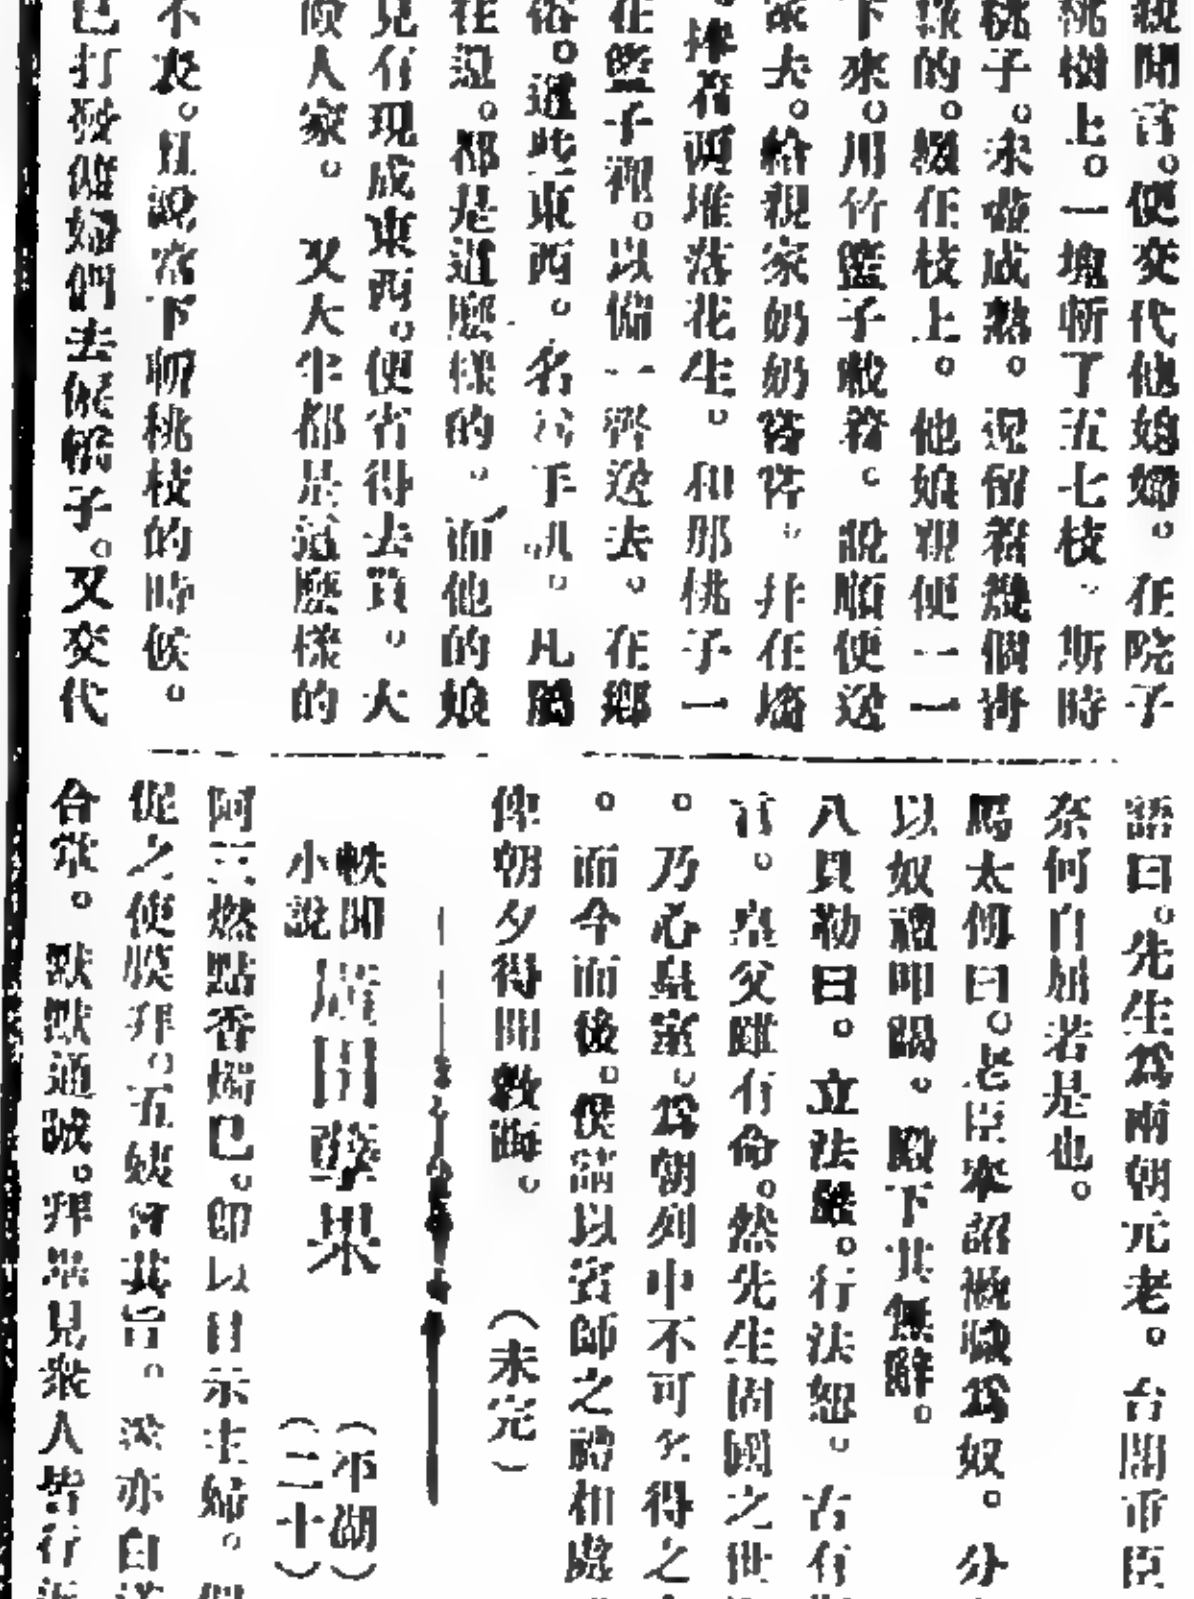 親聞言。便交代他媳婦。在院子
桃樹上。一塊斬了五七枝。斯時
桃子。未嘗成熟。還留着幾個青
綠的。綴在枝上。他娘親便一一
下來。用竹籃子載着。說順便送
家去。給親家奶奶嘗嘗。並在墻
捧着兩堆落花生。和那桃子一
在籃子裡。以備一齊送去。在鄉
俗。這些東西。名 手 。凡屬
往還。都是這麼樣的。而他的娘
見有現成東西。便省得去買。大
人家。又大半都是這麼樣的
不衰。且說當下斬桃枝的時候。
已打發 婦們去催轎子。又交代
語曰。先生爲兩朝元老。台閣重臣
奈何自屈若是也。
馬太傅曰。老臣奉詔 職爲奴。分
以奴禮叩謁。殿下其無辭。
八貝勒曰。立法嚴。行法恕。古有
言。皇父雖有命。然先生固國之世
。乃心皇室。爲朝列中不可多得之
。而今而後。僕請以賓師之禮相處
俾朝夕得聞教誨。（未完）
軼聞小說 唐田孽果 （平湖）（二十）
阿三燃點香燭已。卽以目示主婦。
促之使膜拜。五姨會其旨。 亦自
合掌。默默通誠。拜 見衆人皆行